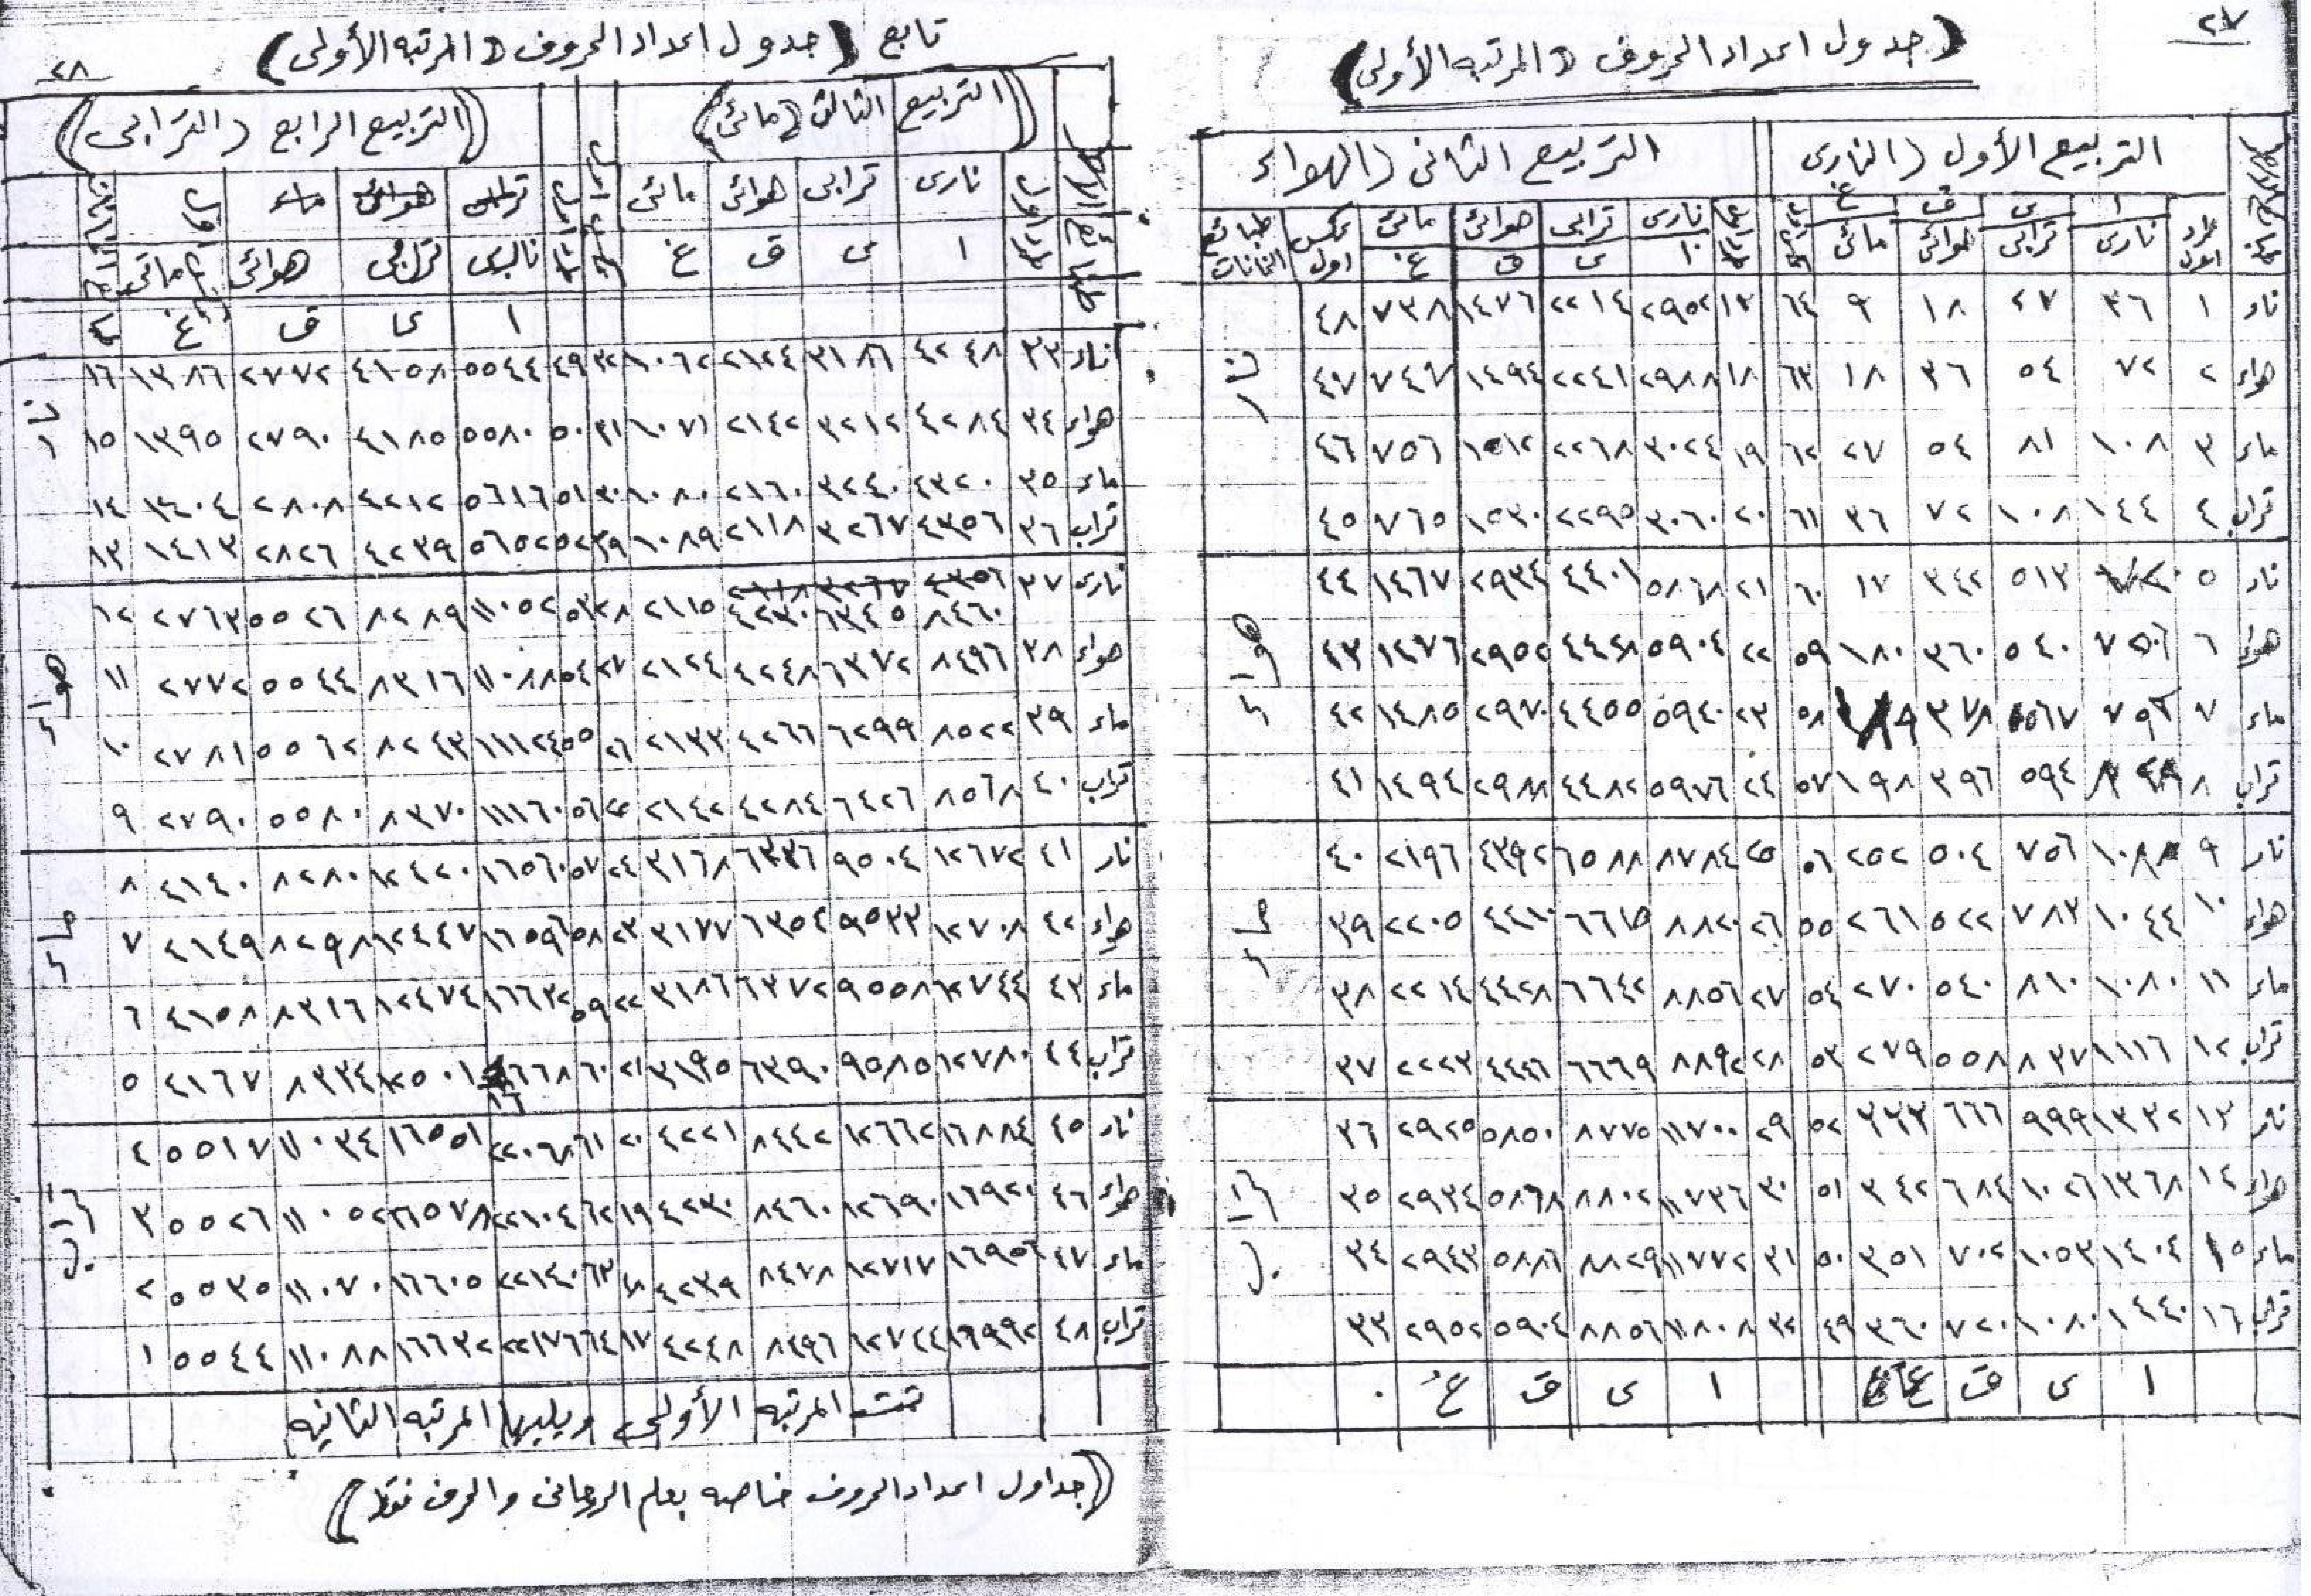 ٢٧
(جدول اعداد الحروف « المرتبه الأولى)
التربيع الأول (النارى
التربيع الثانى (الهواء
ا ى ق غ
نارى ترابى هوائى مائى
نارى ترابى هوائى مائى عكس اول طبائع الخانات
ا ى ق غ
نار ١ ٣٦ ٢٧ ١٨ ٩ ٦٤ ١٧ ٢٩٥٢ ٢٢١٤ ١٤٧٦ ٧٣٨ ٤٨
هواء ٢ ٧٢ ٥٤ ٣٦ ١٨ ٦٣ ١٨ ٢٩٨٨ ٢٢٤١ ١٤٩٤ ٧٤٧ ٤٧
نار
ماء ٣ ١٠٨ ٨١ ٥٤ ٢٧ ٦٢ ١٩ ٣٠٢٤ ٢٢٦٨ ١٥١٢ ٧٥٦ ٤٦
تراب ٤ ١٤٤ ١٠٨ ٧٢ ٣٦ ٦١ ٢٠ ٣٠٦٠ ٢٢٩٥ ١٥٣٠ ٧٦٥ ٤٥
نار ٥ ٥١٣ ٣٤٢ ١٧ ٦٠ ٢١ ٥٨٦٨ ٤٤٠١ ٢٩٣٤ ١٤٦٧ ٤٤
هواء ٦ ٥٤٠ ٣٦٠ ١٨٠ ٥٩ ٢٢ ٥٩٠٤ ٤٤٢٨ ٢٩٥٢ ١٤٧٦ ٤٣
هواء
ماء ٧ ٧٥٦ ٥٦٧ ٣٧٨ ١٨٩ ٥٨ ٢٣ ٥٩٤٠ ٤٤٥٥ ٢٩٧٠ ١٤٨٥ ٤٢
تراب ٨ ٥٩٤ ٣٩٦ ١٩٨ ٥٧ ٢٤ ٥٩٧٦ ٤٤٨٢ ٢٩٨٨ ١٤٩٤ ٤١
نار ٩ ١٠٠٨ ٧٥٦ ٥٠٤ ٢٥٢ ٥٦ ٢٥ ٨٧٨٤ ٦٥٨٨ ٤٣٩٢ ٢١٩٦ ٤٠
هواء ١٠ ١٠٤٤ ٧٨٣ ٥٢٢ ٢٦١ ٥٥ ٢٦ ٨٨٢٠ ٦٦١٥ ٤٤١٠ ٢٢٠٥ ٣٩
ماء
ماء ١١ ١٠٨٠ ٨١٠ ٥٤٠ ٢٧٠ ٥٤ ٢٧ ٨٨٥٦ ٦٦٤٢ ٤٤٢٨ ٢٢١٤ ٣٨
تراب ١٢ ١١١٦ ٨٣٧ ٥٥٨ ٢٧٩ ٥٣ ٢٨ ٨٨٩٢ ٦٦٦٩ ٤٤٤٦ ٢٢٢٣ ٣٧
نار ١٣ ١٣٣٢ ٩٩٩ ٦٦٦ ٣٣٣ ٥٢ ٢٩ ١١٧٠٠ ٨٧٧٥ ٥٨٥٠ ٢٩٢٥ ٣٦
هواء ١٤ ١٣٦٨ ١٠٢٦ ٦٨٤ ٣٤٢ ٥١ ٣٠ ١١٧٣٦ ٨٨٠٢ ٥٨٦٨ ٢٩٣٤ ٣٥
تراب
ماء ١٥ ١٤٠٤ ١٠٥٣ ٧٠٢ ٣٥١ ٥٠ ٣١ ١١٧٧٢ ٨٨٢٩ ٥٨٨٦ ٢٩٤٣ ٣٤
تراب ١٦ ١٤٤٠ ١٠٨٠ ٧٢٠ ٣٦٠ ٤٩ ٣٢ ١١٨٠٨ ٨٨٥٦ ٥٩٠٤ ٢٩٥٢ ٣٣
ا ى ق غ ا ى ق غ ٠
٢٨
تابع (جدول اعداد الحروف « المرتبه الأولى)
((التربيع الثالث (مائى))
((التربيع الرابع (الترابى))
نارى ترابى هوائى مائى
ا ى ق غ
نارى ترابى هوائى مائى
ا ى ق غ
نار ٣٣ ٤٢٤٨ ٣١٨٦ ٢١٢٤ ١٠٦٢ ٣٢ ٤٩ ٥٥٤٤ ٤١٥٨ ٢٧٧٢ ١٣٨٦ ١٦
هواء ٣٤ ٤٢٨٤ ٣٢١٢ ٢١٤٢ ١٠٧١ ٣١ ٥٠ ٥٥٨٠ ٤١٨٥ ٢٧٩٠ ١٣٩٥ ١٥
نار
ماء ٣٥ ٤٣٢٠ ٣٢٤٠ ٢١٦٠ ١٠٨٠ ٣٠ ٥١ ٥٦١٦ ٤٢١٢ ٢٨٠٨ ١٤٠٤ ١٤
تراب ٣٦ ٤٣٥٦ ٣٢٦٧ ٢١١٨ ١٠٨٩ ٢٩ ٥٢ ٥٦٥٢ ٤٢٣٩ ٢٨٢٦ ١٤١٣ ١٣
نارى ٣٧ ٨٤٦٠ ٦٣٤٥ ٤٢٣٠ ٢١١٥ ٢٨ ٥٣ ١١٠٥٢ ٨٢٨٩ ٥٥٢٦ ٢٧٦٣ ١٢
هواء ٣٨ ٨٤٩٦ ٦٣٧٢ ٤٢٤٨ ٢١٢٤ ٢٧ ٥٤ ١١٠٨٨ ٨٣١٦ ٥٥٤٤ ٢٧٧٢ ١١
هواء
ماء ٣٩ ٨٥٢٢ ٦٢٩٩ ٤٢٦٦ ٢١٣٣ ٢٦ ٥٥ ١١١٢٤ ٨٢٤٣ ٥٥٦٢ ٢٧٨١ ١٠
تراب ٤٠ ٨٥٦٨ ٦٤٢٦ ٤٢٨٤ ٢١٤٢ ٢٥ ٥٦ ١١١٦٠ ٨٣٧٠ ٥٥٨٠ ٢٧٩٠ ٩
نار ٤١ ١٢٦٧٢ ٩٥٠٤ ٦٣٣٦ ٣١٦٨ ٢٤ ٥٧ ١٦٥٦٠ ١٢٤٢٠ ٨٢٨٠ ٤١٤٠ ٨
هواء ٤٢ ١٢٧٠٨ ٩٥٣٣ ٦٣٥٤ ٣١٧٧ ٢٣ ٥٨ ١٦٥٩٦ ١٢٤٤٧ ٨٢٩٨ ٤١٤٩ ٧
ماء
ماء ٤٣ ١٢٧٤٤ ٩٥٥٨ ٦٣٧٢ ٣١٨٦ ٢٢ ٥٩ ١٦٦٣٢ ١٢٤٧٤ ٨٣١٦ ٤١٥٨ ٦
تراب ٤٤ ١٢٧٨٠ ٩٥٨٥ ٦٣٩٠ ٣١٩٥ ٢١ ٦٠ ١٦٦٦٨ ١٢٥٠١ ٨٣٣٤ ٤١٦٧ ٥
نار ٤٥ ١٦٨٨٤ ١٢٦٦٢ ٨٤٤٢ ٤٢٢١ ٢٠ ٦١ ٢٢٠٦٨ ١٦٥٥١ ١١٠٣٤ ٥٥١٧ ٤
هواء ٤٦ ١٦٩٢٠ ١٢٦٩٠ ٨٤٦٠ ٤٢٣٠ ١٩ ٦٢ ٢٢١٠٤ ١٦٥٧٨ ١١٠٥٢ ٥٥٢٦ ٣
تراب
ماء ٤٧ ١٦٩٥٦ ١٢٧١٧ ٨٤٧٨ ٤٢٣٩ ١٨ ٦٣ ٢٢١٤٠ ١٦٦٠٥ ١١٠٧٠ ٥٥٣٥ ٢
تراب ٤٨ ١٦٩٩٢ ١٢٧٤٤ ٨٤٩٦ ٤٢٤٨ ١٧ ٦٤ ٢٢١٧٦ ١٦٦٣٢ ١١٠٨٨ ٥٥٤٤ ١
تمت المرتبه الأولى ويليها المرتبه الثانيه
((جداول اعداد الحروف خاصه بعلم الروحانى والحرف فقط))